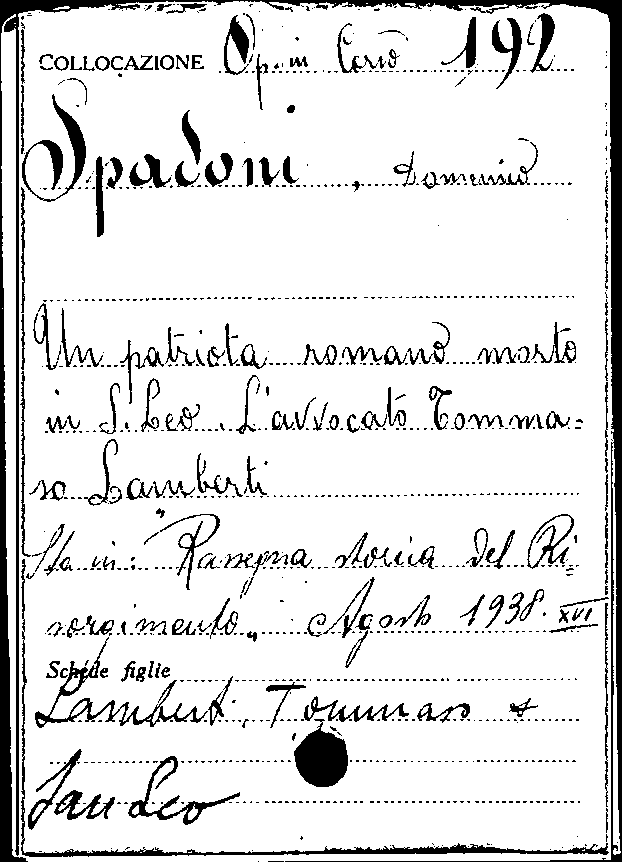 COLLOCAZIONE Op. in Corso 192
Spadoni, Domenico
Un patriota romano morto
in S. Leo. L'avvocato Tomma=
so Lamberti
Sta in: "Rassegna storica del Ri=
sorgimento" Agosto 1938. XVI
Schede figlie
Lamberti, Tommaso +
San Leo